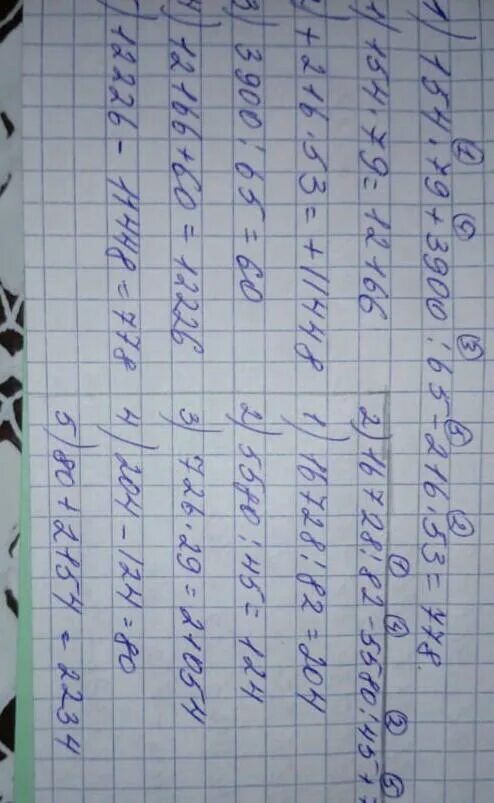 ① ④ ③ ⑤ ②
1) 154·79+3900:65-216·53=778.
1) 154·79=12166
+216·53=+11448
3) 3900:65=60
4) 12166+60=12226
12226-11448=778
① ④ ② ⑤
2) 16728:82-5580:45+
1) 16728:82=204
2) 5580:45=124
3) 726·29=21054
4) 204-124=80
5) 80+2154=2234